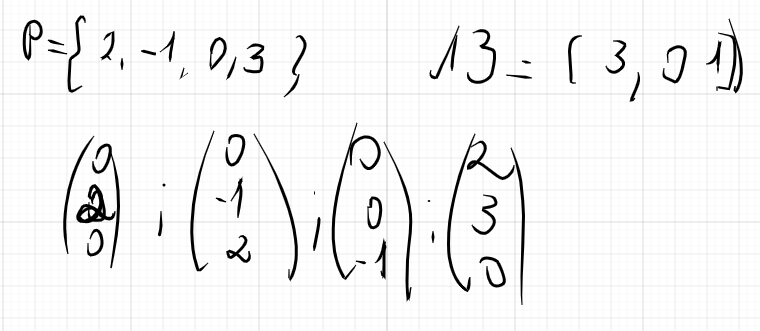 P={2,-1,0,3} B=[3,0 1])
(0 2 0) ; (0 -1 2) ; (0 0 -1) ; (2 3 0)